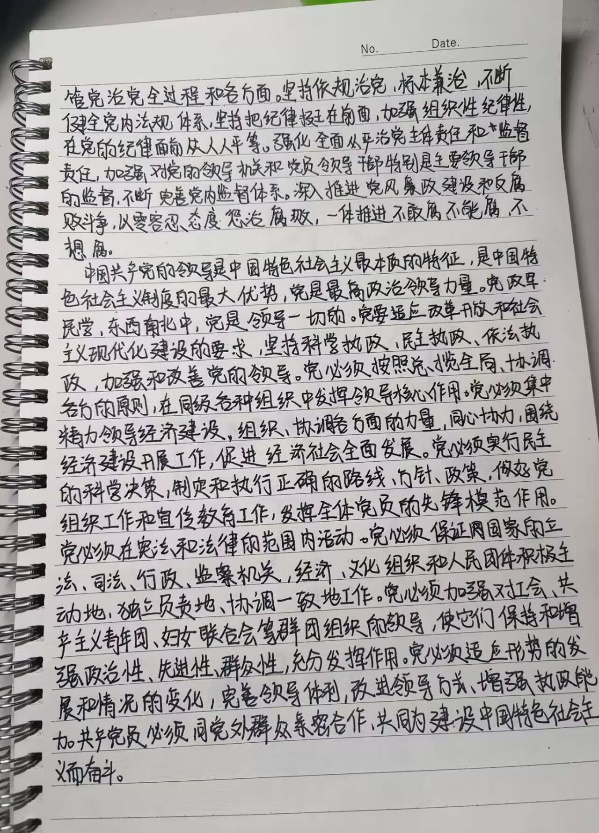 No. Date.
管党治党全过程和各方面。坚持依规治党、标本兼治，不断
健全党内法规体系，坚持把纪律挺在前面，加强组织性纪律性，
在党的纪律面前人人平等。强化全面从严治党主体责任和监督
责任，加强对党的领导机关和党员领导干部特别是主要领导干部
的监督，不断完善党内监督体系。深入推进党风廉政建设和反腐
败斗争，以零容忍态度惩治腐败，一体推进不敢腐不能腐、不
想腐。
中国共产党的领导是中国特色社会主义最本质的特征，是中国特
色社会主义制度的最大优势，党是最高政治领导力量。党政军
民学，东西南北中，党是领导一切的。党要适应改革开放和社会
主义现代化建设的要求，坚持科学执政、民主执政、依法执
政，加强和改善党的领导。党必须按照总揽全局、协调
各方的原则，在同级各种组织中发挥领导核心作用。党必须集中
精力领导经济建设，组织、协调各方面的力量，同心协力，围绕
经济建设开展工作，促进经济社会全面发展。党必须实行民主
的科学决策，制定和执行正确的路线、方针、政策，做好党
组织工作和宣传教育工作，发挥全体党员的先锋模范作用。
党必须在宪法和法律的范围内活动。党必须保证国家的立
法、司法、行政、监察机关，经济、文化组织和人民团体积极主
动地、独立负责地、协调一致地工作。党必须加强对工会、共
产主义青年团、妇女联合会等群团组织的领导，使它们保持和增
强政治性、先进性、群众性，充分发挥作用。党必须适应形势的发
展和情况的变化，完善领导体制，改进领导方式，增强执政能
力。共产党员必须同党外群众亲密合作，共同为建设中国特色社会主
义而奋斗。